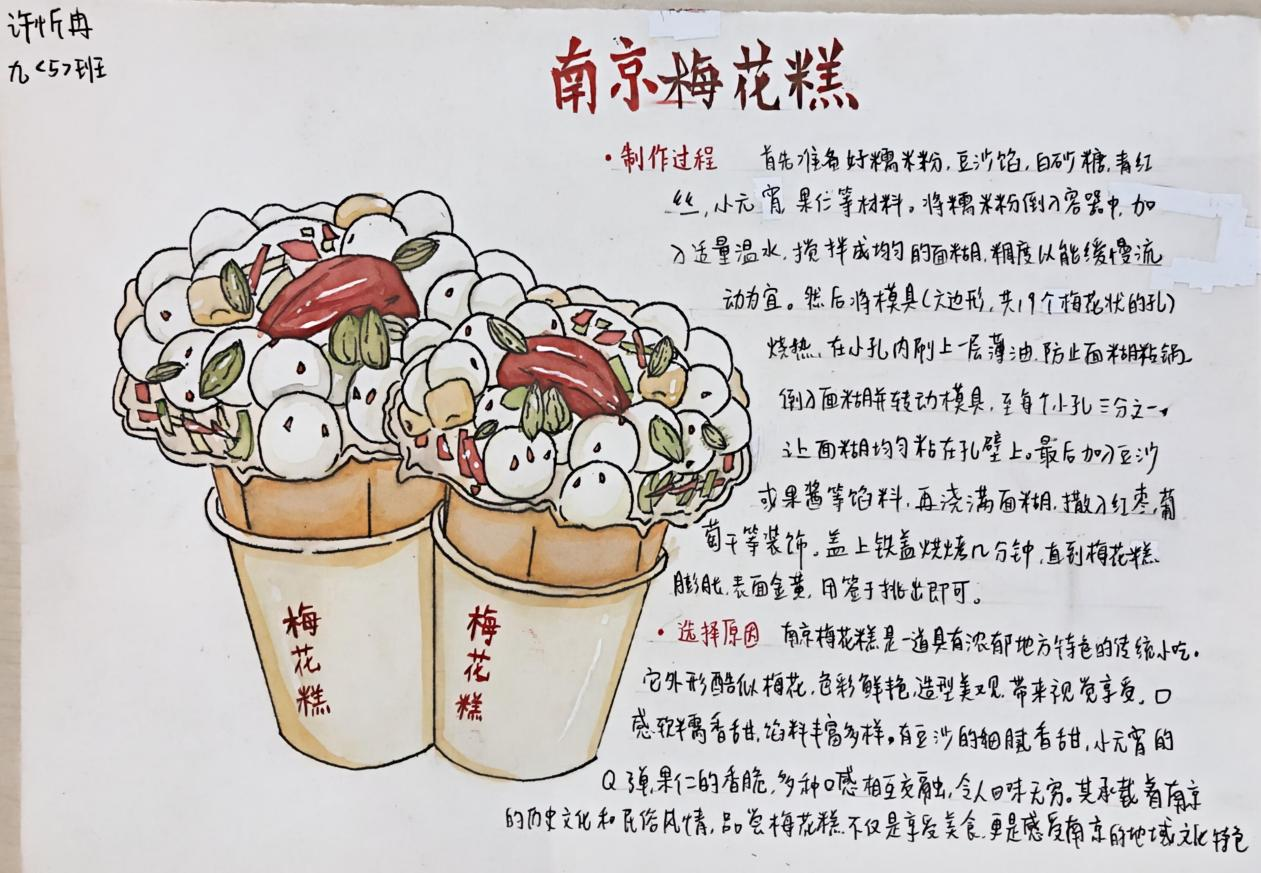 许忻冉
九<5>班
南京梅花糕
·制作过程 首先准备好糯米粉,豆沙馅,白砂糖,青红
丝,小元宵 果仁等材料。将糯米粉倒入容器中,加
入适量温水,搅拌成均匀的面糊,稠度以能缓慢流
动为宜。然后将模具(六边形,共19个梅花状的孔)
烧热,在小孔内刷上一层薄油,防止面糊粘锅。
倒入面糊并转动模具,至每个小孔三分之一,
让面糊均匀粘在孔壁上。最后加入豆沙
或果酱等馅料,再浇满面糊,撒入红枣,葡
萄干等装饰。盖上铁盖烘烤几分钟,直到梅花糕
膨胀,表面金黄,用签子挑出即可。
·选择原因 南京梅花糕是一道具有浓郁地方特色的传统小吃。
它外形酷似梅花,色彩鲜艳,造型美观,带来视觉享受。口
感软糯香甜,馅料丰富多样。有豆沙的细腻香甜,小元宵的
Q弹,果仁的香脆,多种口感相互交融,令人回味无穷。其承载着南京
的历史文化和民俗风情,品尝梅花糕不仅是享受美食,更是感受南京的地域文化特色
梅花糕
梅花糕